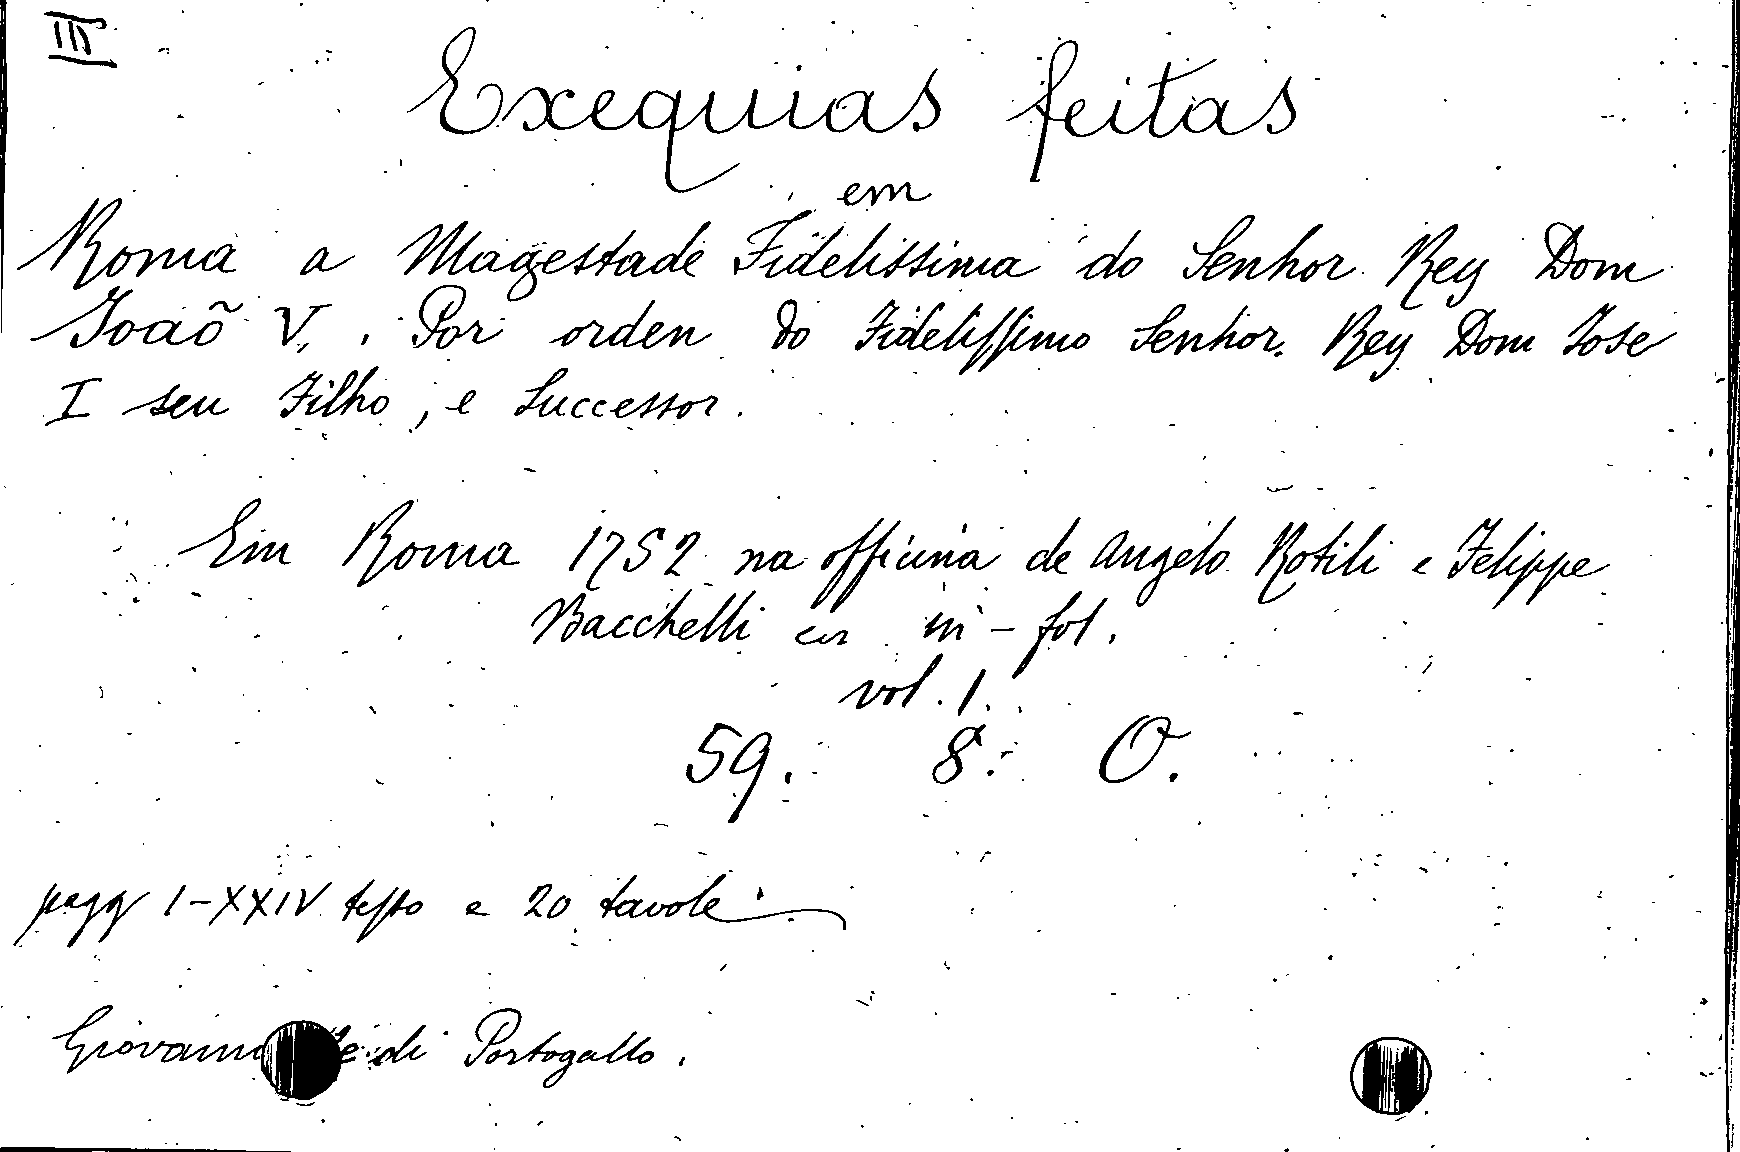 III
Exequias feitas
em
Roma a Magestade Fidelissima do Senhor Rey Dom
Joaõ V. . Por orden do Fidelissimo Senhor. Rey Dom Jose
I seu Filho, e Successor.
Em Roma 1752 na officina de Angelo Rotili e Felippe
Bacchelli in-fol.
vol. 1.
59. 8. O.
pagg I-XXIV testo e 20 tavole.
Giovanni di Portogallo.